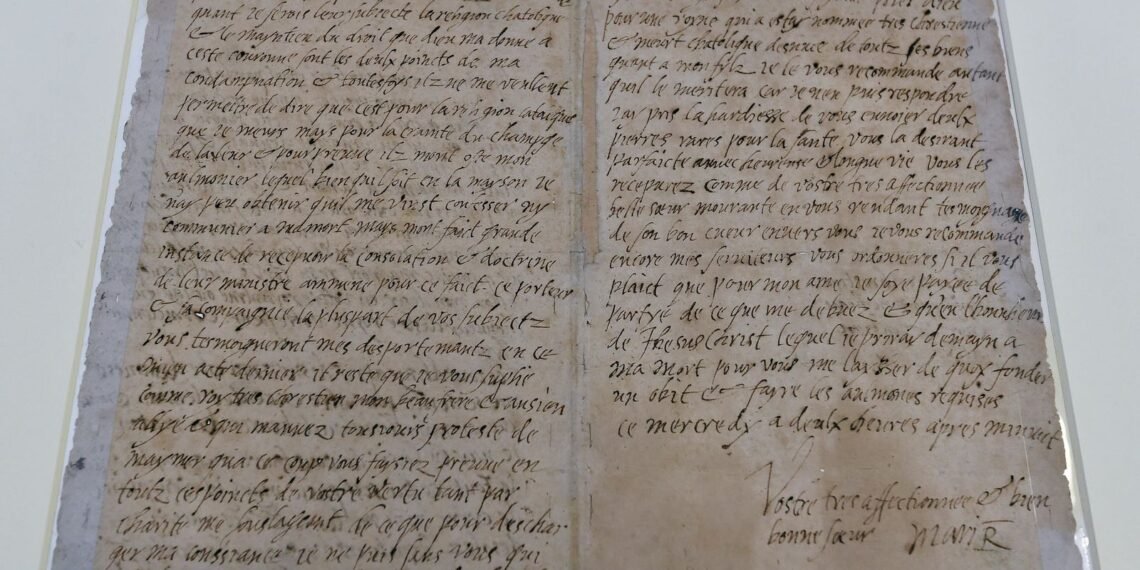 quant je serois leur subjecte la religion chatolique
& le mayntien du droit que dieu ma donné a
ceste couronne sont les deulx points de ma
condampnation & toutesfoys ilz ne me veullent
permetre de dire que cest pour la religion catolique
que je meurs mays pour la crainte du champge
de la leur & pour preuve ilz mont osté mon
aulmonier lequel bien quil soit en la mayson je
nay peu obtenir quil me vinst confesser ny
communier a ma mort mays mont faict grande
instance de recepvoir la consolation & doctrine
de leur ministre ammene pour ce faict ce porteur
& sa compaignie la pluspart de vos subjectz
vous tesmoigneront mes desportemantz en ce
mien acte dernier il reste que je vous suplie
comme roy tres chrestien mon beau frere & ansien
allyé & qui mavvez tousjours protesté de
maymer qua ce coup vous faysiez preuve en
toutz ces poincts de vostre vertu tant par
charité me soulageant de ce que pour deschar
ger ma conssiance je ne puis sans vous qui
pour une royne qui a estay nommée tres chrestienne
& meurt chatolique desnuee de toutz ses biens
quant a mon fylz je le vous recommande autant
quil le meritera car je nen puis respondre
jay pris la hardiesse de vous envoier deulx
pierres rares pour la santé vous la desirant
parfaicte avvec heureuse & longue vie vous les
recepvrez comme de vostre tres affectionnee
belle soeur mourante en vous rendant tesmoygnage
de son bon cueur envers vous je vous recommande
encore mes serviteurs vous ordonneres si il vous
plaict que pour mon ame je soye payee de
partye de ce que me debvez & quen lhonneur
de Jhesus Christ lequel je prieray demayn a
ma mort pour vous me laysser de quoy fonder
un obit & fayre les aumones requises
ce mercredy a deulx heures apres minuit
Vostre tres affectionnee & bien
bonne soeur Mari R